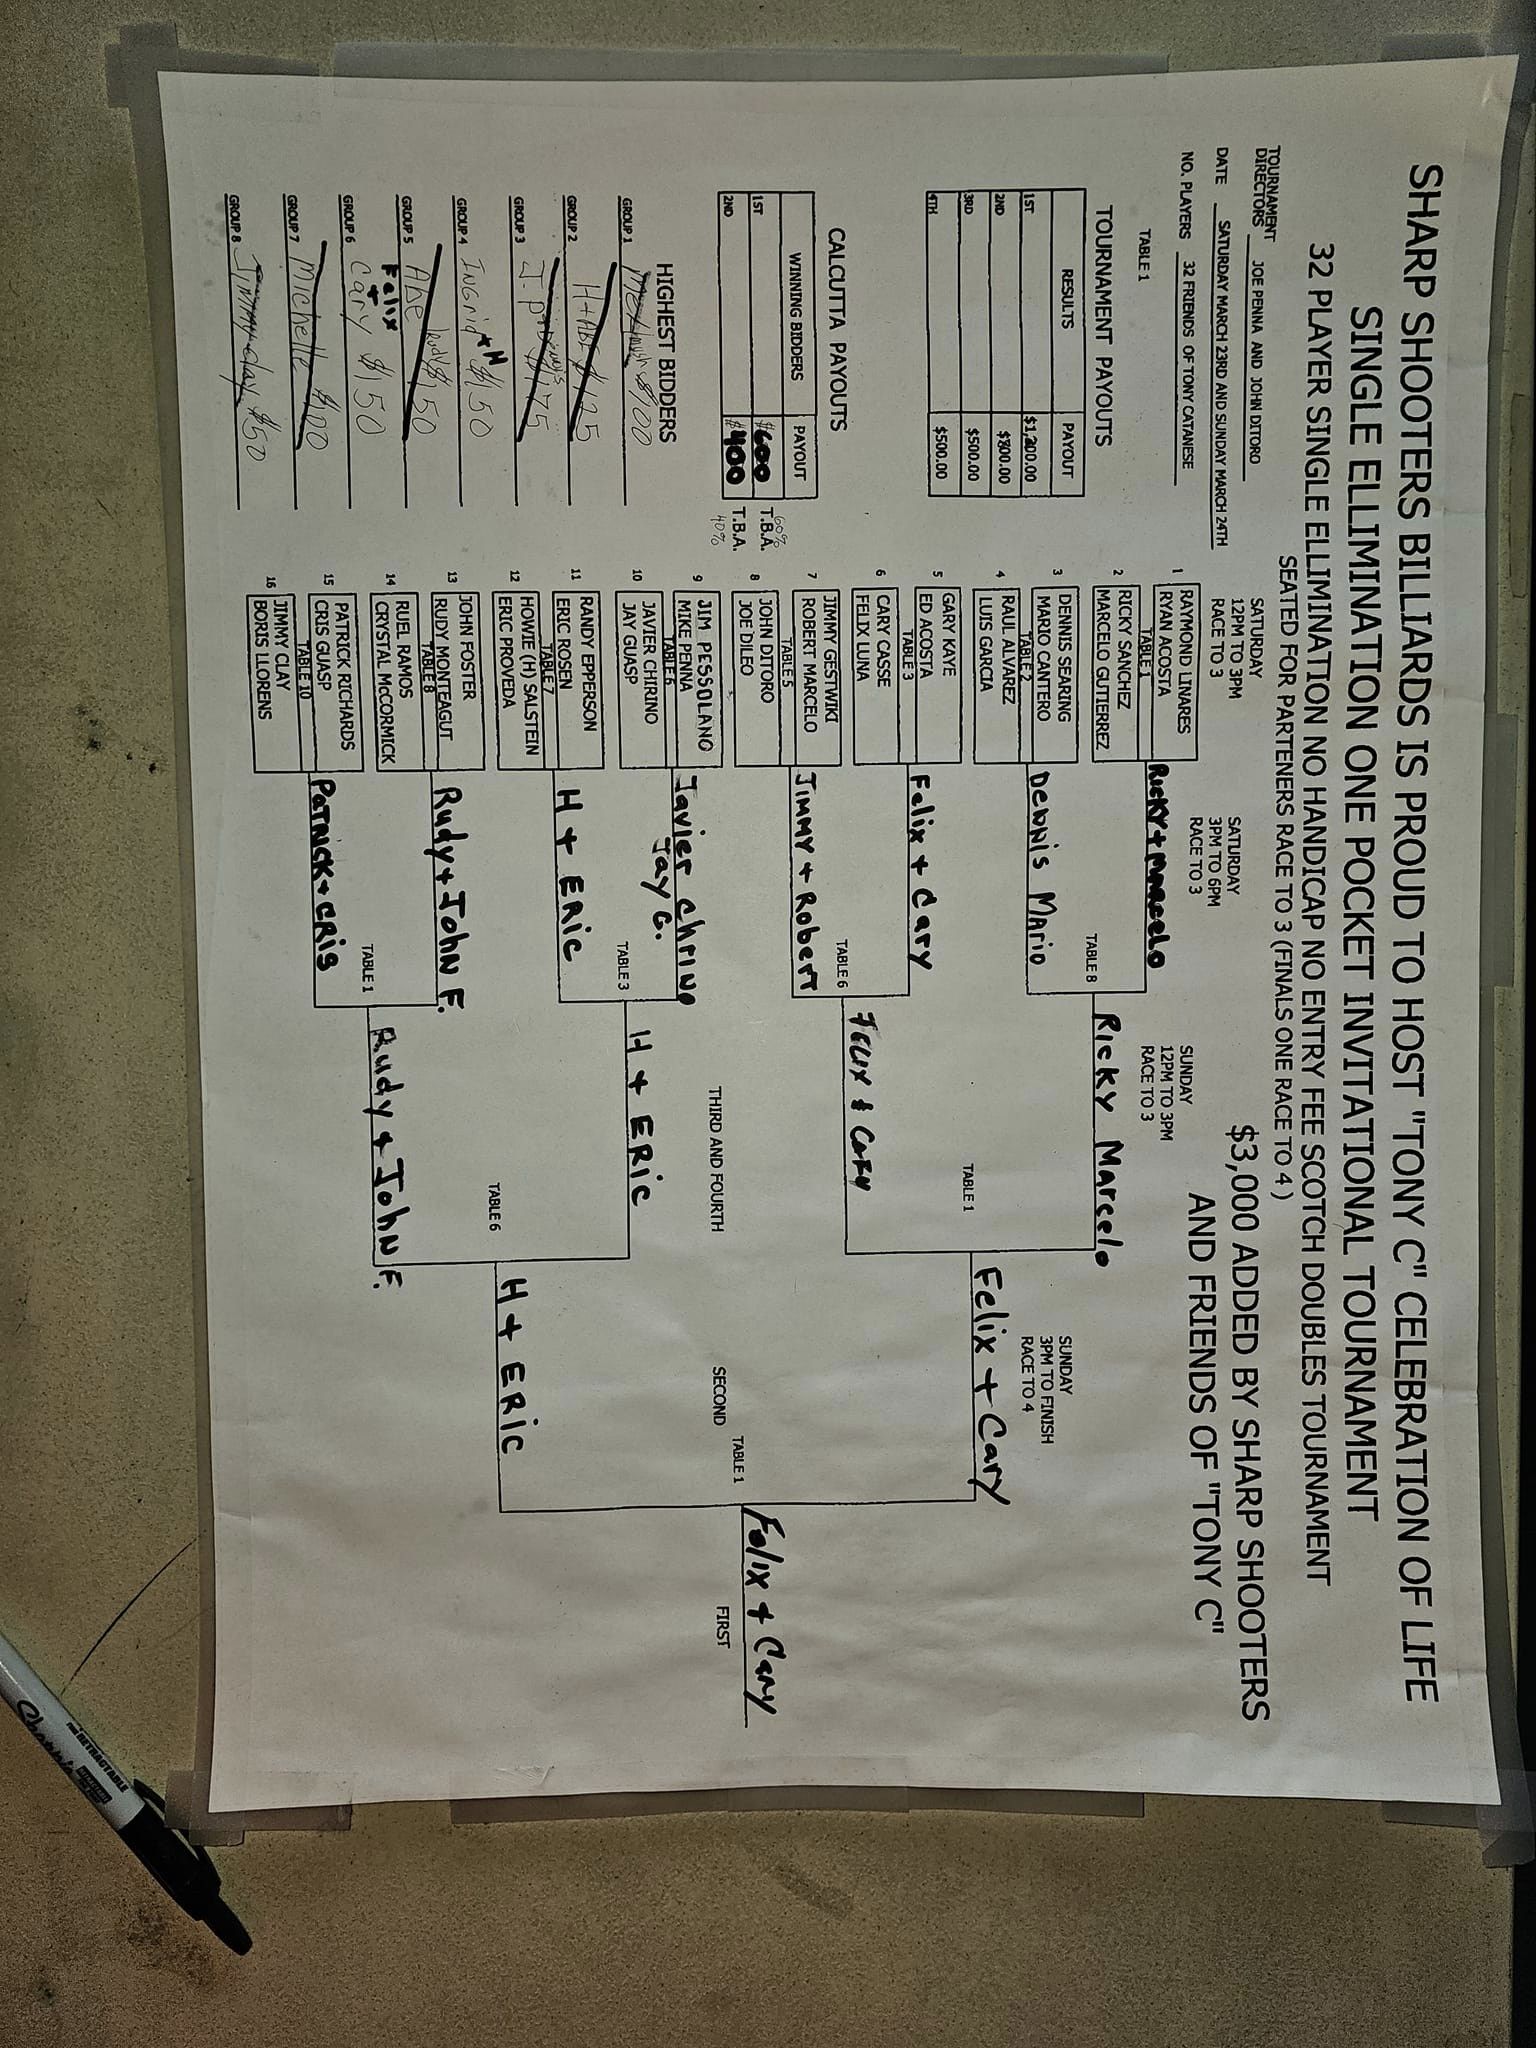 SHARP SHOOTERS BILLIARDS IS PROUD TO HOST "TONY C" CELEBRATION OF LIFE
SINGLE ELLIMINATION ONE POCKET INVITATIONAL TOURNAMENT
32 PLAYER SINGLE ELLIMINATION NO HANDICAP NO ENTRY FEE SCOTCH DOUBLES TOURNAMENT
SEATED FOR PARTENERS RACE TO 3 (FINALS ONE RACE TO 4 )
$3,000 ADDED BY SHARP SHOOTERS
AND FRIENDS OF "TONY C"
TOURNAMENT
DIRECTORS JOE PENNA AND JOHN DITORO
DATE SATURDAY MARCH 23RD AND SUNDAY MARCH 24TH
NO. PLAYERS 32 FRIENDS OF TONY CATANESE
TABLE 1
TOURNAMENT PAYOUTS
RESULTS PAYOUT
1ST $1,200.00
2ND $800.00
3RD $500.00
4TH $500.00
CALCUTTA PAYOUTS
WINNING BIDDERS PAYOUT
1ST $600 T.B.A. 60%
2ND $400 T.B.A. 40%
HIGHEST BIDDERS
GROUP 1 $100
GROUP 2 H+ABE $125
GROUP 3 J. $175
GROUP 4 INGrid + H $150
GROUP 5 Abe Rudy $150
GROUP 6 Cary + Felix $150
GROUP 7 Michelle $100
GROUP 8 Jimmy Clay $50
SATURDAY
12PM TO 3PM
RACE TO 3
1 RAYMOND LINARES
RYAN ACOSTA
TABLE 1
2 RICKY SANCHEZ
MARCELO GUTIERREZ
3 DENNIS SEARING
MARIO CANTERO
TABLE 2
4 RAUL ALVAREZ
LUIS GARCIA
5 GARY KAYE
ED ACOSTA
TABLE 3
6 CARY CASSE
FELIX LUNA
7 JIMMY GESTWIKI
ROBERT MARCELO
TABLE 5
8 JOHN DITORO
JOE DILEO
9 JIM PESSOLANO
MIKE PENNA
TABLE 6
10 JAVIER CHIRINO
JAY GUASP
11 RANDY EPPERSON
ERIC ROSEN
TABLE 7
12 HOWIE (H) SALSTEIN
ERIC PROVEDA
13 JOHN FOSTER
RUDY MONTEAGUT
TABLE 8
14 RUEL RAMOS
CRYSTAL McCORMICK
15 PATRICK RICHARDS
CRIS GUASP
TABLE 10
16 JIMMY CLAY
BORIS LLORENS
SATURDAY
3PM TO 6PM
RACE TO 3
Ricky + Marcelo
TABLE 8
Dennis Mario
Felix + Cary
TABLE 6
Jimmy + Robert
Javier Chrino
Jay G.
TABLE 3
H + ERic
Rudy + John F.
TABLE 1
PATRICK + CRIS
SUNDAY
12PM TO 3PM
RACE TO 3
Ricky Marcelo
TABLE 1
FELIX & CARY
THIRD AND FOURTH
H + ERic
TABLE 6
Rudy + John F.
SUNDAY
3PM TO FINISH
RACE TO 4
Felix + Cary
TABLE 1
SECOND
H + ERic
Felix + Cary
FIRST
Sharpie
RETRACTABLE